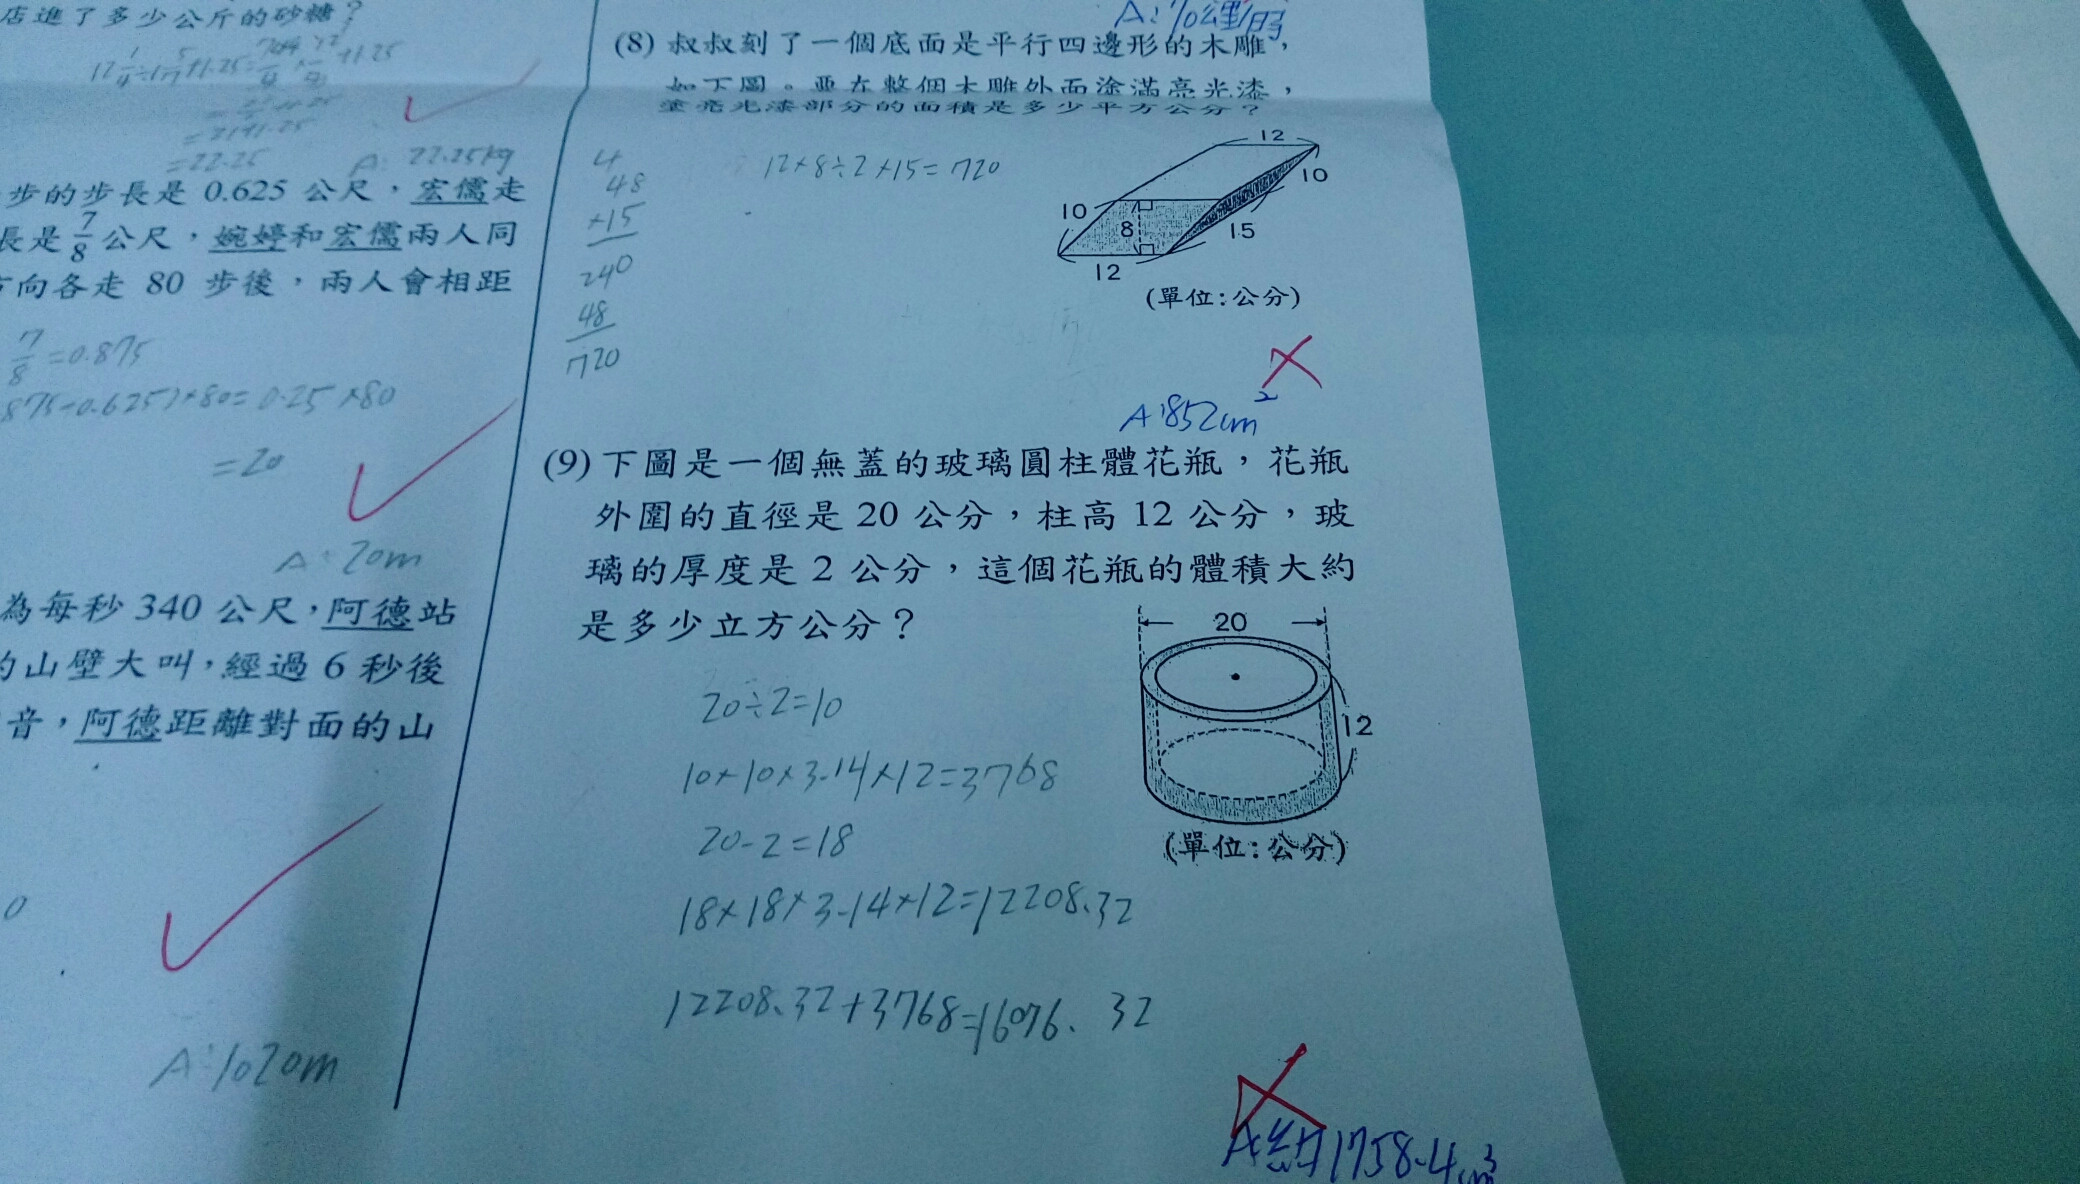 店進了多少公斤的砂糖?
=22.25
A: 22.25kg
步的步長是 0.625 公尺,宏儒走
長是 7/8 公尺,婉婷和宏儒兩人同
方向各走 80 步後,兩人會相距
7/8 =0.875
875-0.625)×80=0.25×80
=20
A:20m
為每秒 340 公尺,阿德站
的山壁大叫,經過 6 秒後
音,阿德距離對面的山
0
A:1020m
(8) 叔叔刻了一個底面是平行四邊形的木雕,
如下圖。要在整個木雕外面塗滿亮光漆,
塗亮光漆部分的面積是多少平方公分?
12×8÷2×15=720
4
48
×15
240
48
720
12
10
10
8
15
12
(單位:公分)
A:852cm²
(9) 下圖是一個無蓋的玻璃圓柱體花瓶,花瓶
外圍的直徑是 20 公分,柱高 12 公分,玻
璃的厚度是 2 公分,這個花瓶的體積大約
是多少立方公分?
20
12
(單位:公分)
20÷2=10
10×10×3.14×12=3768
20-2=18
18×18×3.14×12=12208.32
12208.32+3768=16076.32
A:約1758.4cm³